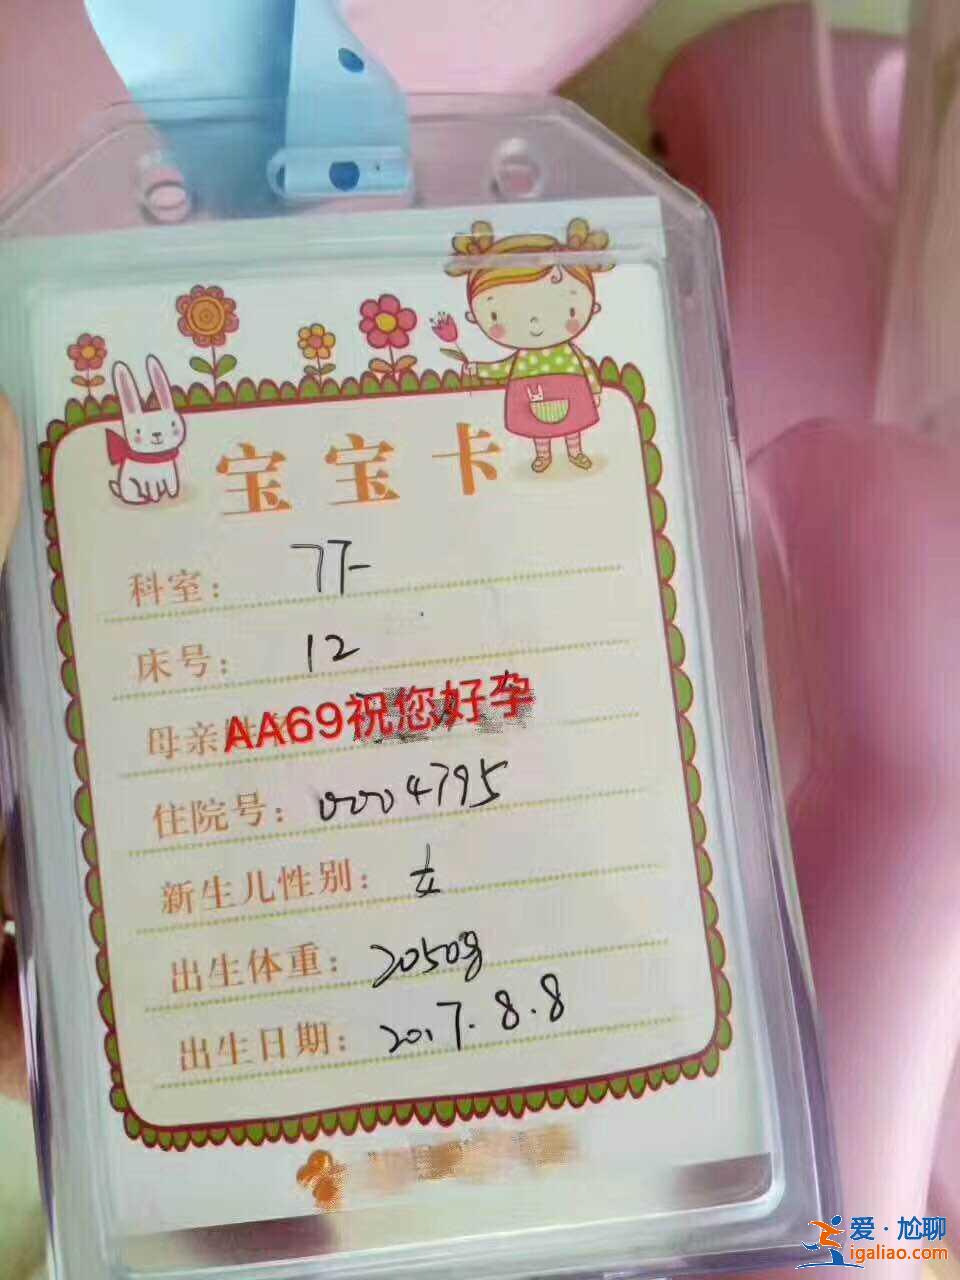 宝宝卡
科室：
床号：12
母亲 AA69祝您好孕
住院号：0004795
新生儿性别：女
出生体重：2050g
出生日期：2017.8.8
爱·尬聊
igaliao.com